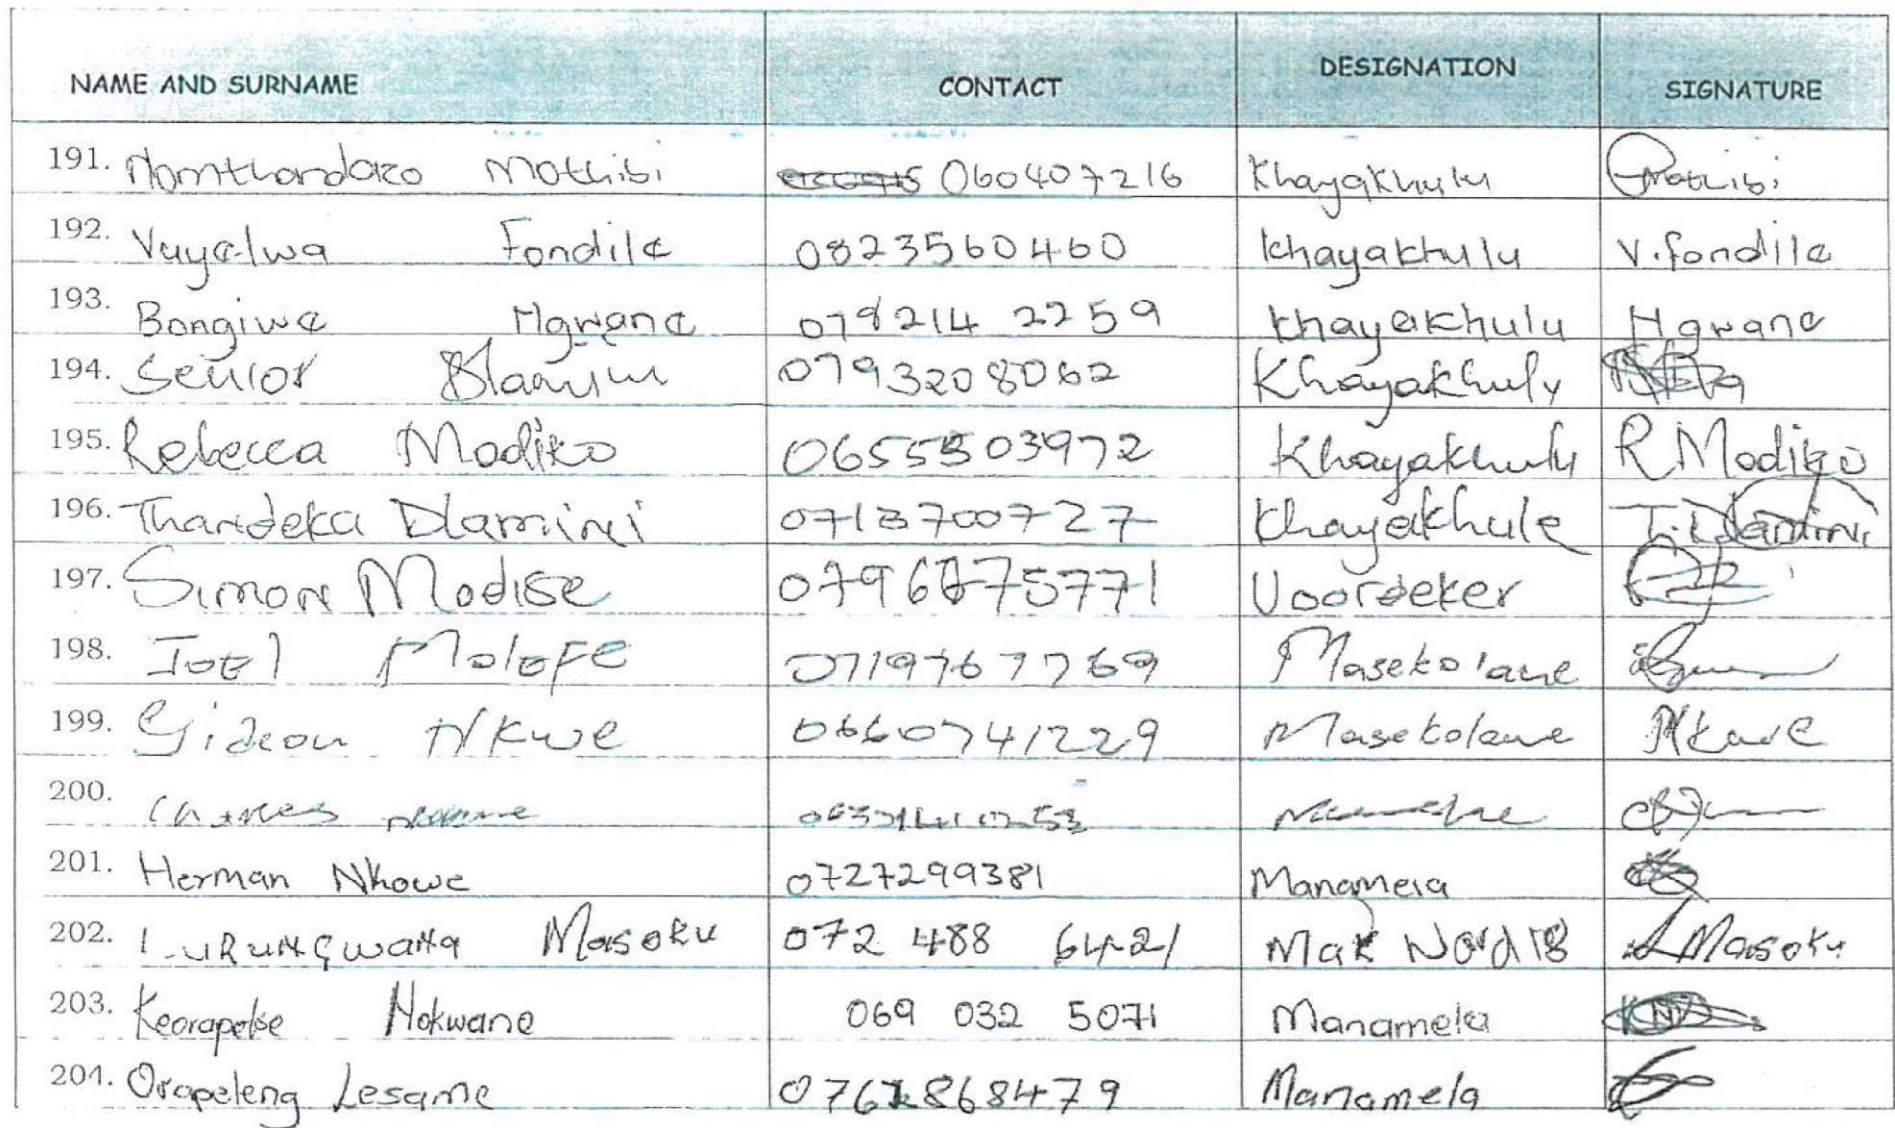 NAME AND SURNAME CONTACT DESIGNATION SIGNATURE
191. Nomthandazo Mothibi 060407216 Khayakhulu Mothibi
192. Vuyelwa Fondile 0823560460 Khayakhulu V.fondile
193. Bongiwe Ngwane 078214 2259 Khayakhulu Ngwane
194. Senior 0793208062 Khayakhulu
195. Rebecca Modiko 0655503972 Khayakhulu R Modiko
196. Thandeka Dlamini 0713700727 Khayakhule T. Dlamini
197. Simon Modise 0796775771 Voordeker
198. Joel Molefe 0719767769 Masekolane
199. Gideon Nkwe 0660741229 Masekolane Nkwe
200. Charles
201. Herman Nkowe 0727299381 Manamela
202. Masoku 072 488 6421 Mak Masoku
203. Keorapetse Nokwane 069 032 5071 Manamela
204. Orapeleng Lesame Manamela